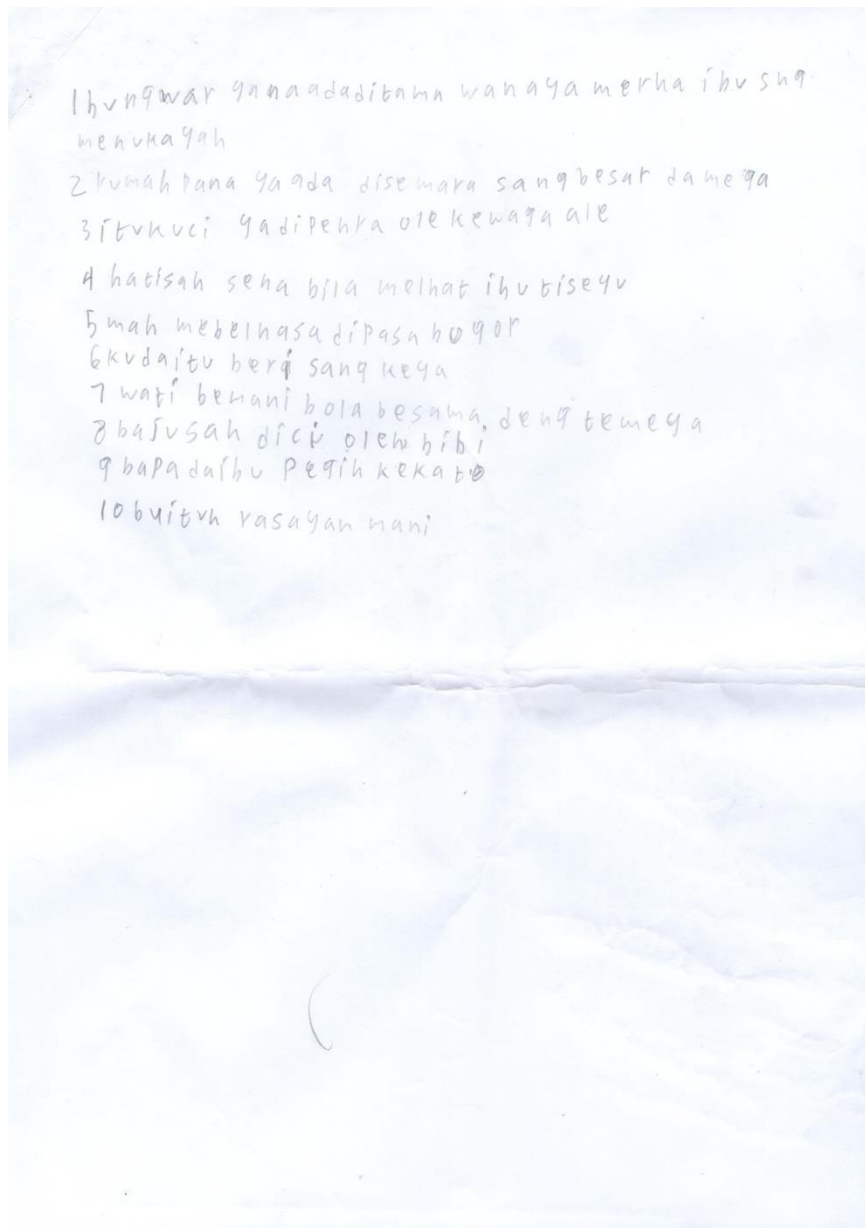 1 bungwar yanaadaditamn wanaya merha ibu sng
menukayah
2 rumah pana yaada disemara sangbesar damega
3 itukuci yadipehra ole kewaga ale
4 hatisah sena bila melhat ibu tiseyu
5 mah mebelnasa dipasa bogor
6 kudaitu beri sang keya
7 wati bemani bola besama, deng temeya
8 bajusah dici oleh bibi
9 bapa daibu pegih kekato
10 buituh rasayan mani